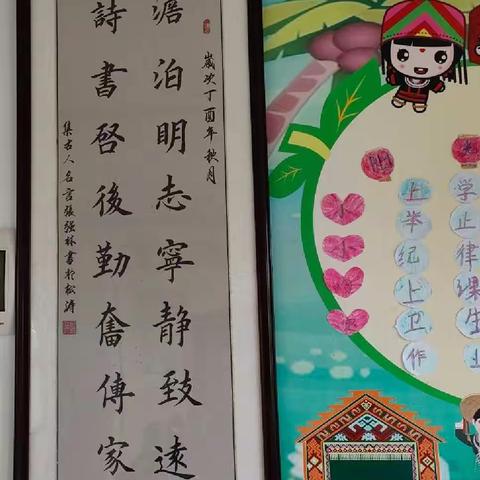 歲次丁酉年秋月
澹泊明志寧静致遠
詩書啓後勤奮傳家
集古人名言張强林書於松濤
阳
小小
上学
举止
纪律
上课
卫生
作业